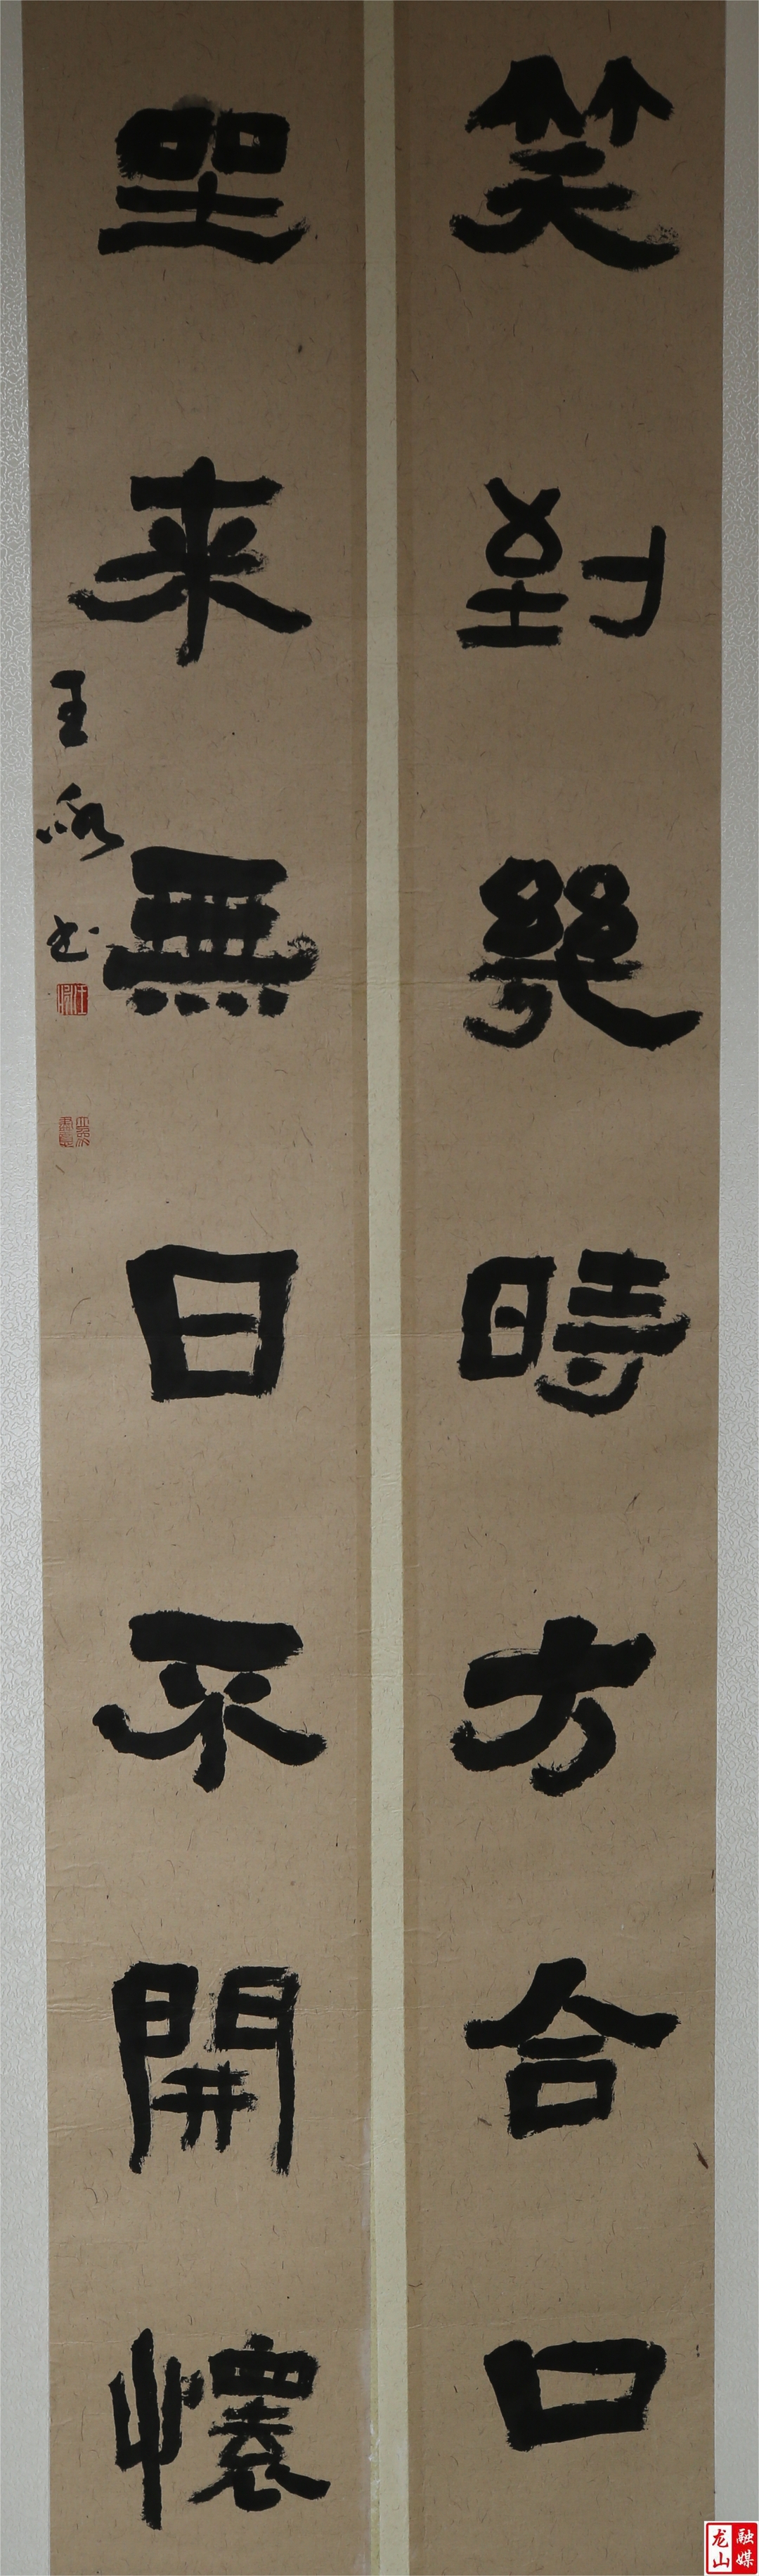 笑到幾時方合口
坐來無日不開懷
王永书
龙山融媒